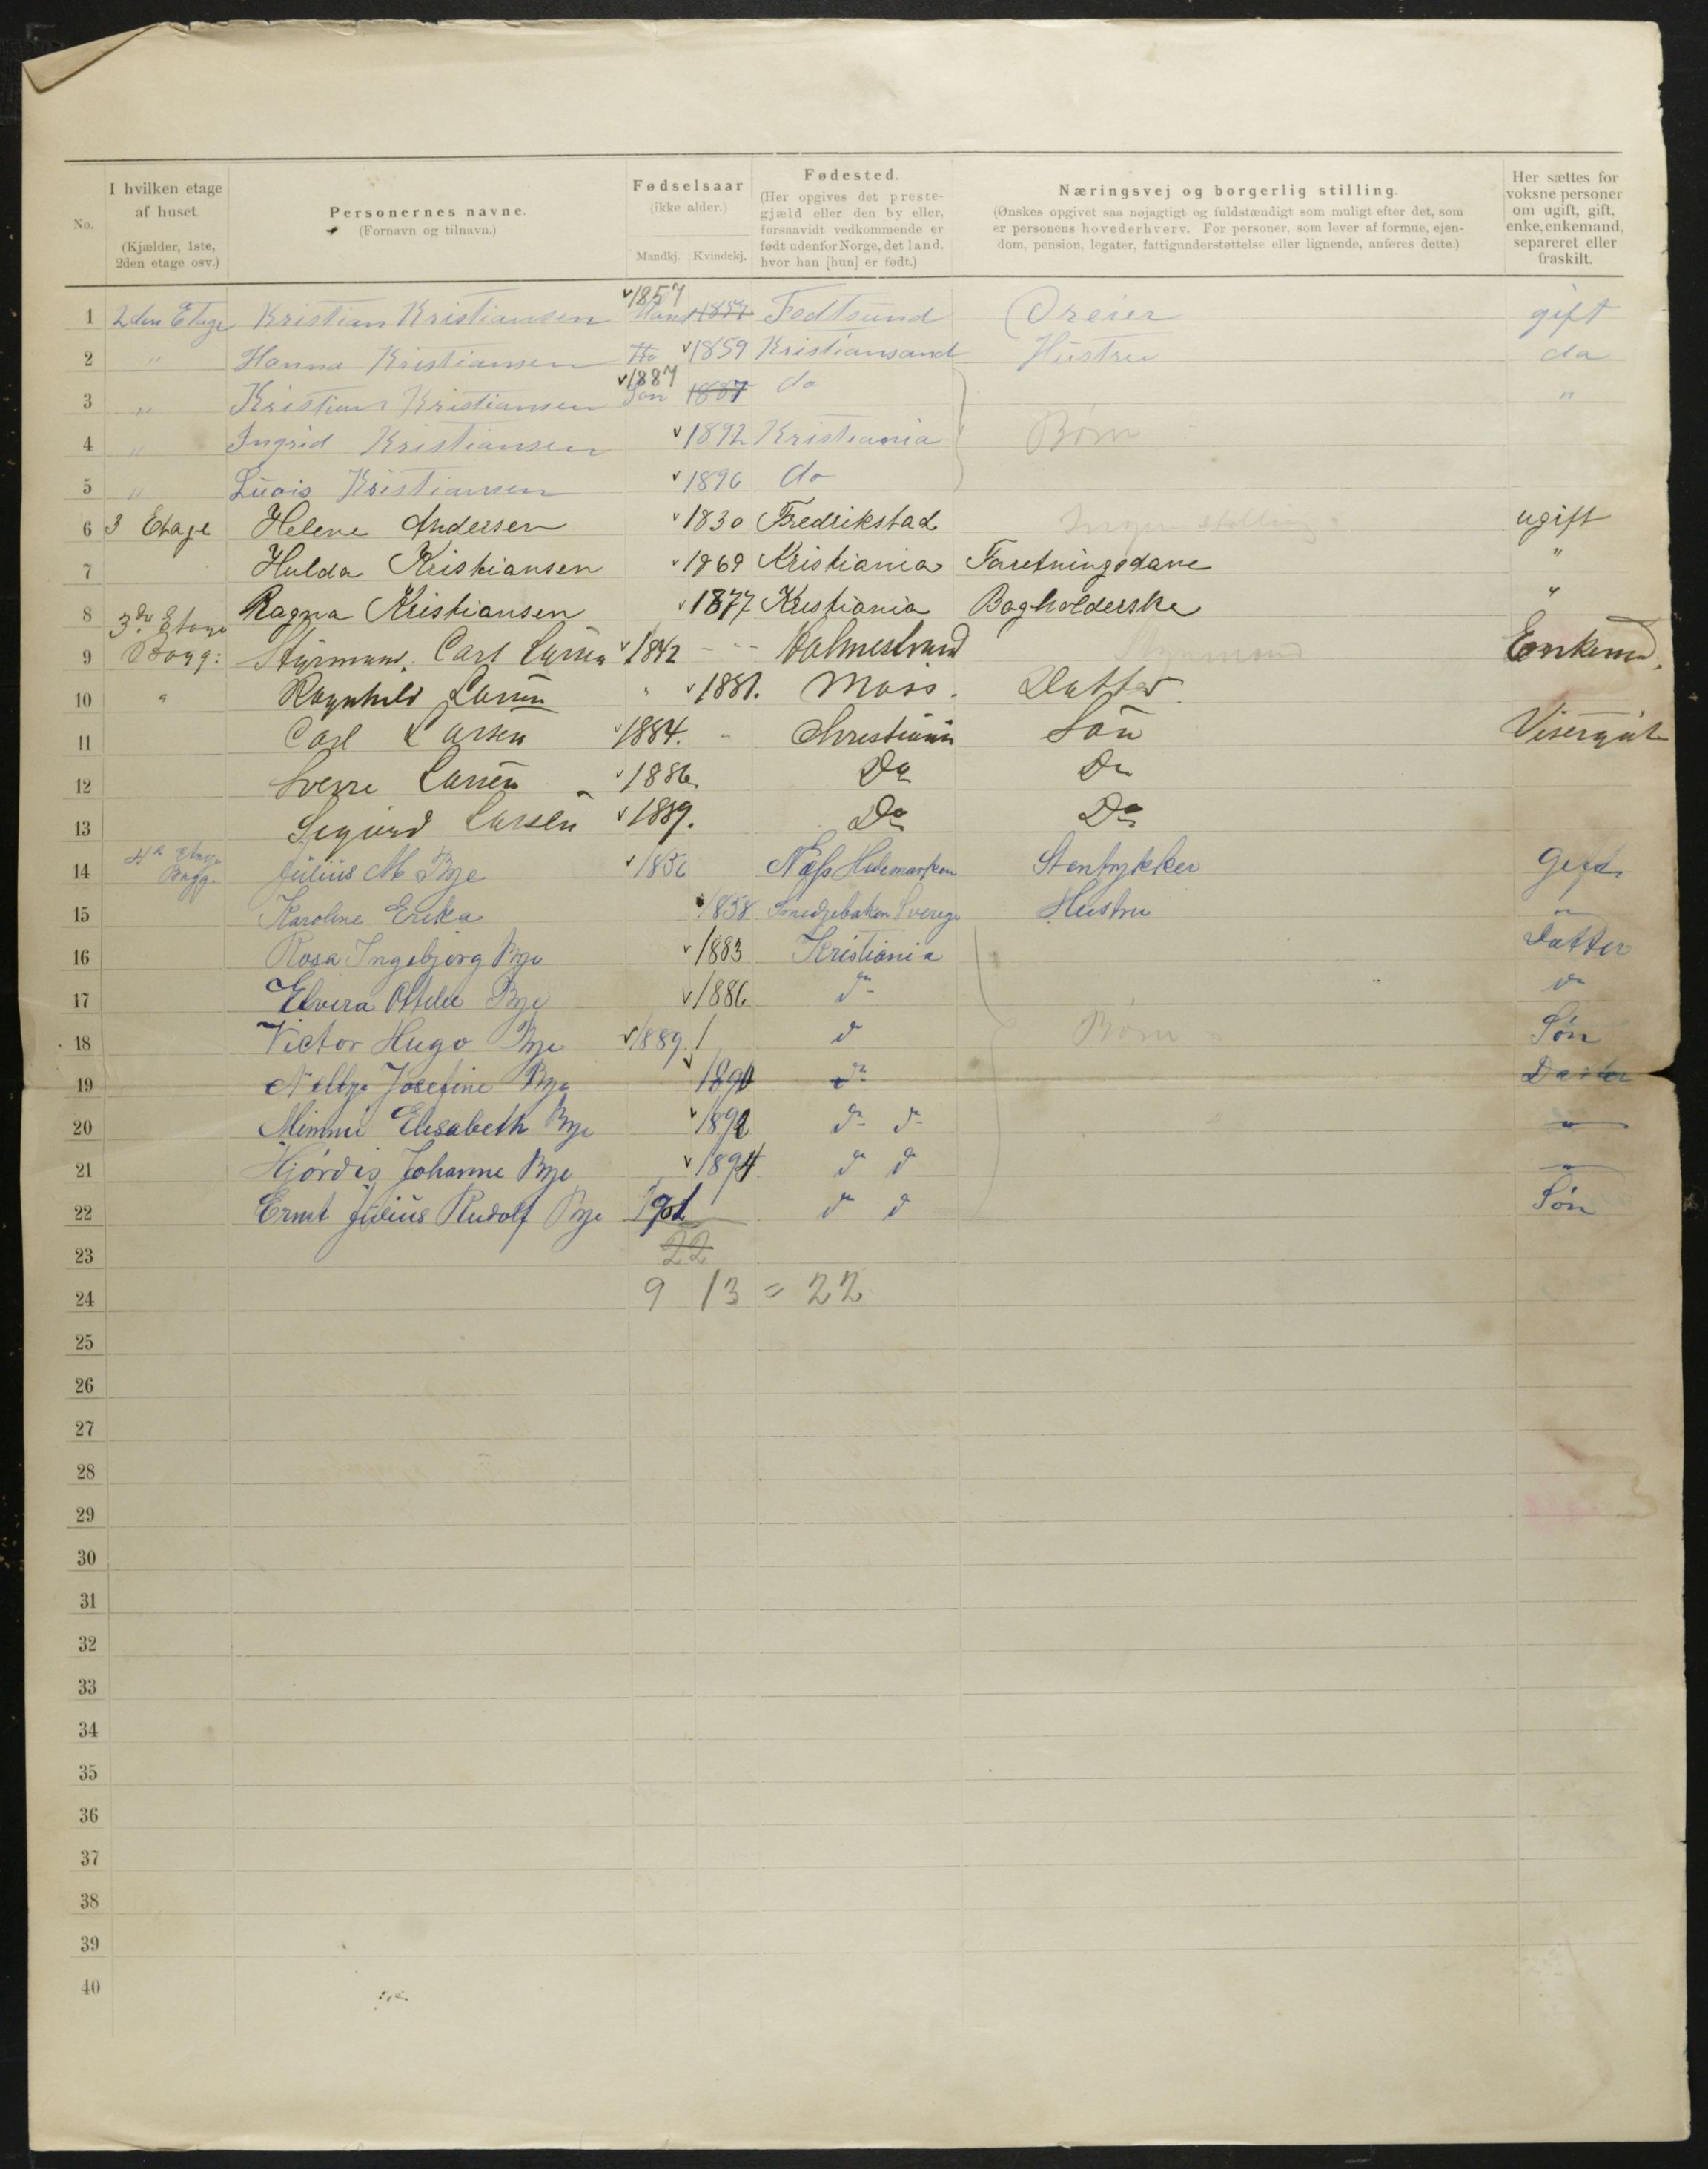 No.
I hvilken etage af huset. (Kjælder, 1ste, 2den etage osv.)
Personernes navne. (Fornavn og tilnavn.)
Fødselsaar (ikke alder.) Mandkj. Kvindekj.
Fødested. (Her opgives det prestegjæld eller den by eller, forsaavidt vedkommende er født udenfor Norge, det land, hvor han [hun] er født.)
Næringsvej og borgerlig stilling. (Ønskes opgivet saa nøjagtigt og fuldstændigt som muligt efter det, som er personens hovederhverv. For personer, som lever af formue, ejendom, pension, legater, fattigunderstøttelse eller lignende, anføres dette.)
Her sættes for voksne personer om ugift, gift, enke, enkemand, separeret eller fraskilt.
1 2den Etage Kristian Kristiansen 1857 1857 Fedtsund Dreier gift
2 " Hanna Kristiansen 1859 Kristiansand Hustru do
3 " Kristian Kristiansen 1887 Søn 1887 do "
4 " Ingrid Kristiansen 1892 Kristiania Børn
5 " Kristiansen 1896 do
6 3 Etage Helene Andersen 1830 Fredrikstad Ingen stilling ugift
7 Hulda Kristiansen 1869 Kristiania Foretningsdame "
8 Ragna Kristiansen 1877 Kristiania Bogholderske "
9 3die Etage Bagg: Styrmand. Carl Larsen 1842 - - - Holmestrand Styrmand Enkemd.
10 " Ragnhild Larsen " 1881. Moss. Datter.
11 Carl Larsen 1884. " Christiania Søn Visergut
12 Sverre Larsen 1886 Do Do
13 Sigurd Larsen 1889. Do Do
14 4de Etage Bagg. Julius M Bye 1856 Næss Hedemarken Stentrykker Gift
15 Karoline Erika 1858 Smedjebaken Sverege Hustru "
16 Rosa Ingebjørg Bye 1883 Kristiania Datter
17 Elvira Ottilie Bye 1886 do do
18 Victor Hugo Bye 1889 / d Børn Søn
19 Josefine Bye 1890 do Datter
20 Mimmi Elisabeth Bye 1892 do do "
21 Hjördis Johanne Bye 1894 do do "
22 Ernst Julius Rudolf Bye 1901 do do Søn
23 22
24 9 13 = 22
25
26
27
28
29
30
31
32
33
34
35
36
37
38
39
40